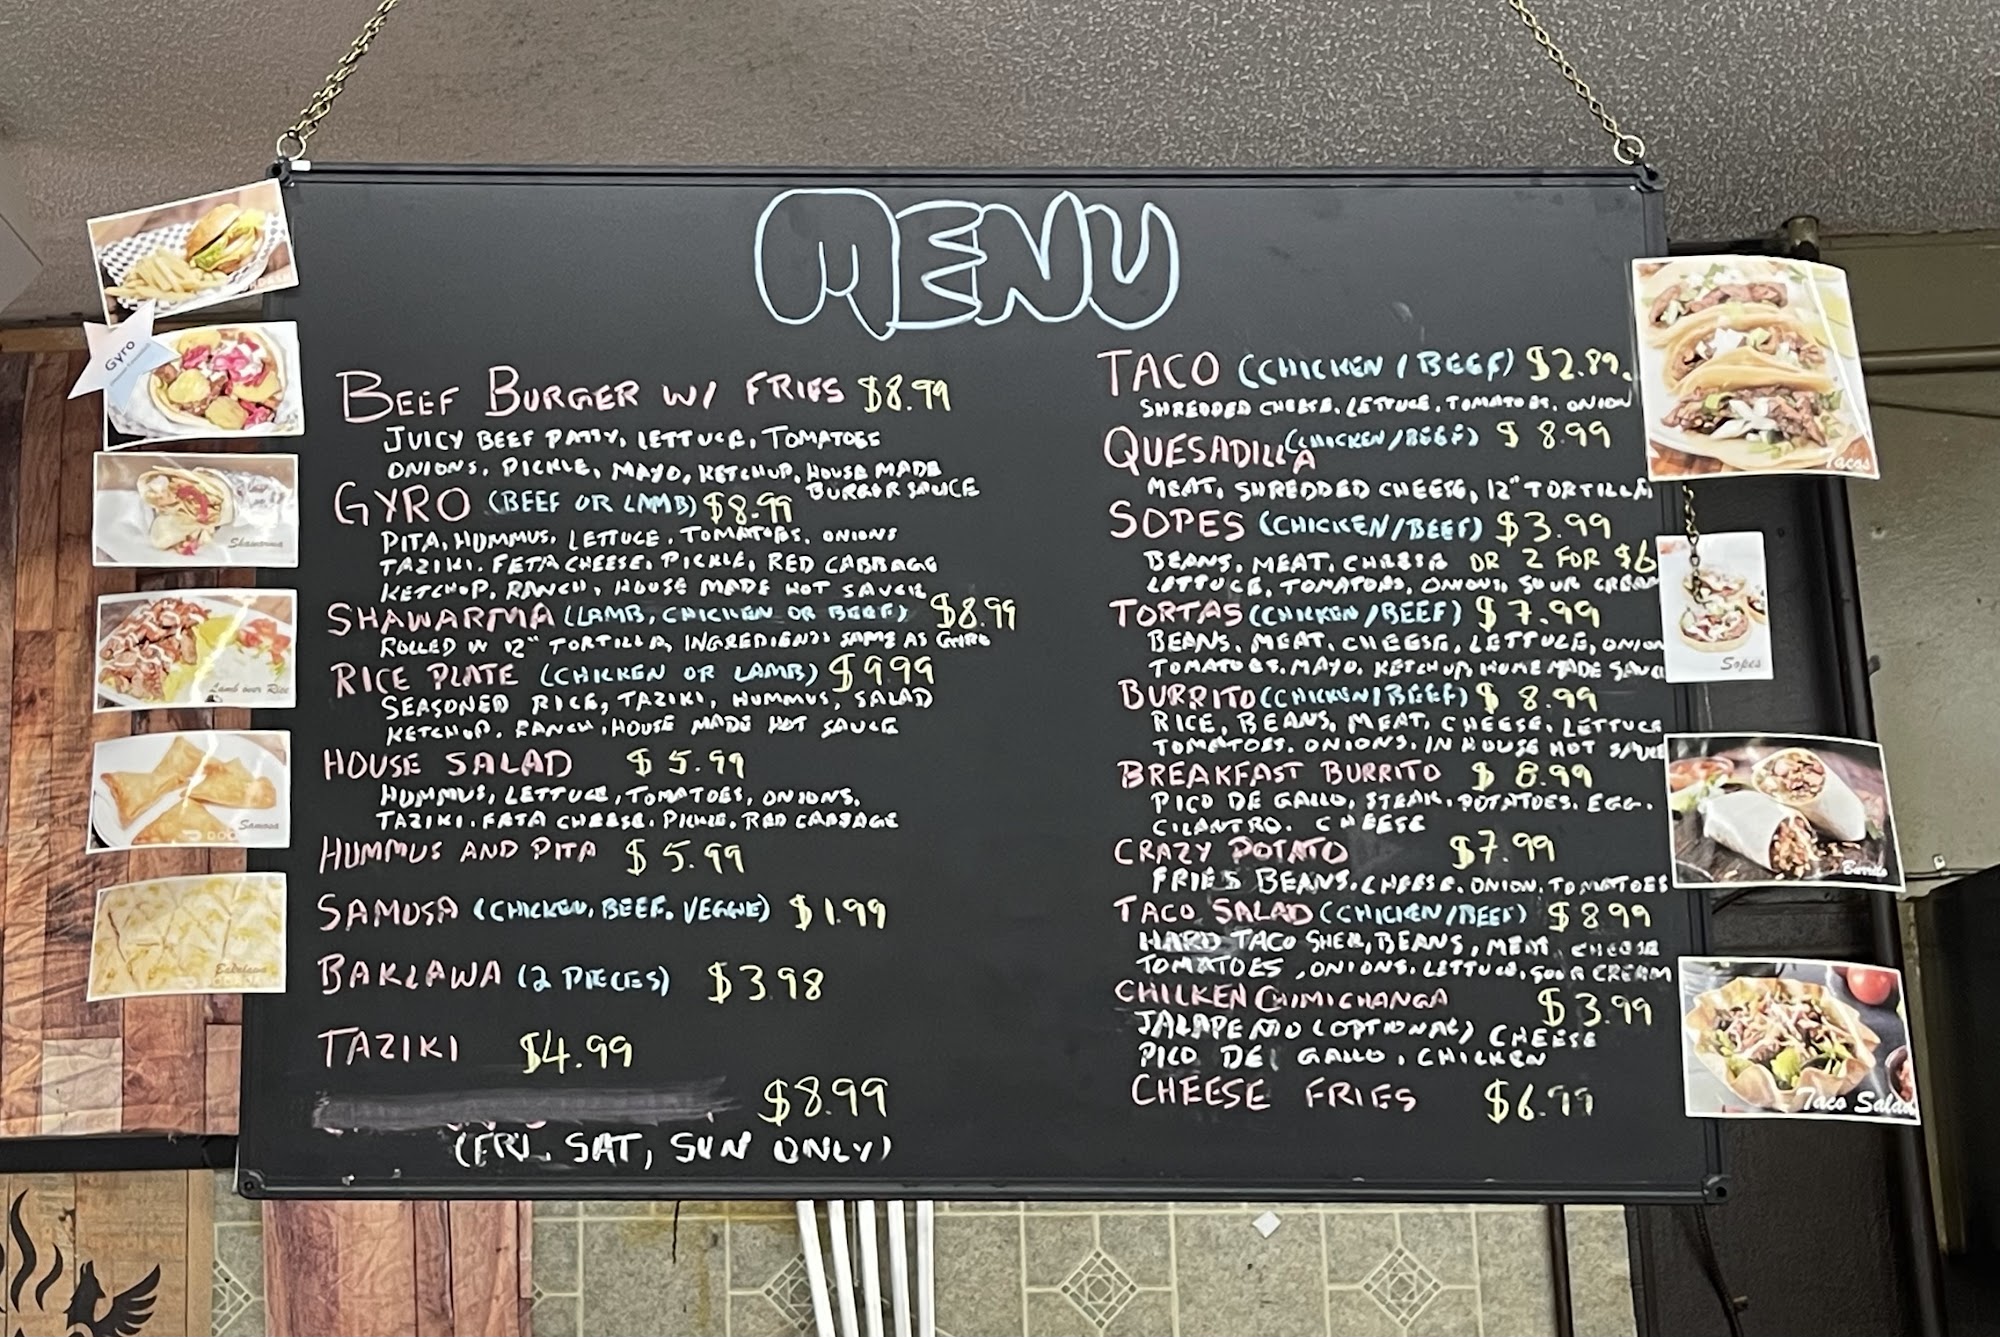 MENU
BEEF BURGER W/ FRIES $8.99
JUICY BEEF PATTY, LETTUCE, TOMATOES
ONIONS, PICKLE, MAYO, KETCHUP, HOUSE MADE
BURGER SAUCE
GYRO (BEEF OR LAMB) $8.99
PITA, HUMMUS, LETTUCE, TOMATOES, ONIONS
TAZIKI, FETA CHEESE, PICKLE, RED CABBAGE
KETCHUP, RANCH, HOUSE MADE HOT SAUCE
SHAWARMA (LAMB, CHICKEN OR BEEF) $8.99
ROLLED IN 12" TORTILLA, INGREDIENTS SAME AS GYRO
RICE PLATE (CHICKEN OR LAMB) $9.99
SEASONED RICE, TAZIKI, HUMMUS, SALAD
KETCHUP, RANCH, HOUSE MADE HOT SAUCE
HOUSE SALAD $5.99
HUMMUS, LETTUCE, TOMATOES, ONIONS,
TAZIKI, FETA CHEESE, PICKLE, RED CABBAGE
HUMMUS AND PITA $5.99
SAMOSA (CHICKEN, BEEF, VEGGIE) $1.99
BAKLAWA (2 PIECES) $3.98
TAZIKI $4.99
$8.99
(FRI, SAT, SUN ONLY)
TACO (CHICKEN / BEEF) $2.89
SHREDDED CHEESE, LETTUCE, TOMATOES, ONION
QUESADILLA (CHICKEN/BEEF) $8.99
MEAT, SHREDDED CHEESE, 12" TORTILLA
SOPES (CHICKEN/BEEF) $3.99
BEANS, MEAT, CHEESE OR 2 FOR $6
LETTUCE, TOMATOES, ONIONS, SOUR CREAM
TORTAS (CHICKEN/BEEF) $7.99
BEANS, MEAT, CHEESE, LETTUCE, ONION
TOMATOES, MAYO, KETCHUP, HOME MADE SAUCE
BURRITO (CHICKEN/BEEF) $8.99
RICE, BEANS, MEAT, CHEESE, LETTUCE
TOMATOES, ONIONS, IN HOUSE HOT SAUCE
BREAKFAST BURRITO $8.99
PICO DE GALLO, STEAK, POTATOES, EGG,
CILANTRO, CHEESE
CRAZY POTATO $7.99
FRIES BEANS, CHEESE, ONION, TOMATOES
TACO SALAD (CHICKEN/BEEF) $8.99
HARD TACO SHELL, BEANS, MEAT, CHEESE
TOMATOES, ONIONS, LETTUCE, SOUR CREAM
CHICKEN CHIMICHANGA $3.99
JALAPENO (OPTIONAL) CHEESE
PICO DEL GALLO, CHICKEN
CHEESE FRIES $6.99
Gyro
Shawarma
Lamb over Rice
Samosa
Baklawa
Tacos
Sopes
Burrito
Taco Salad